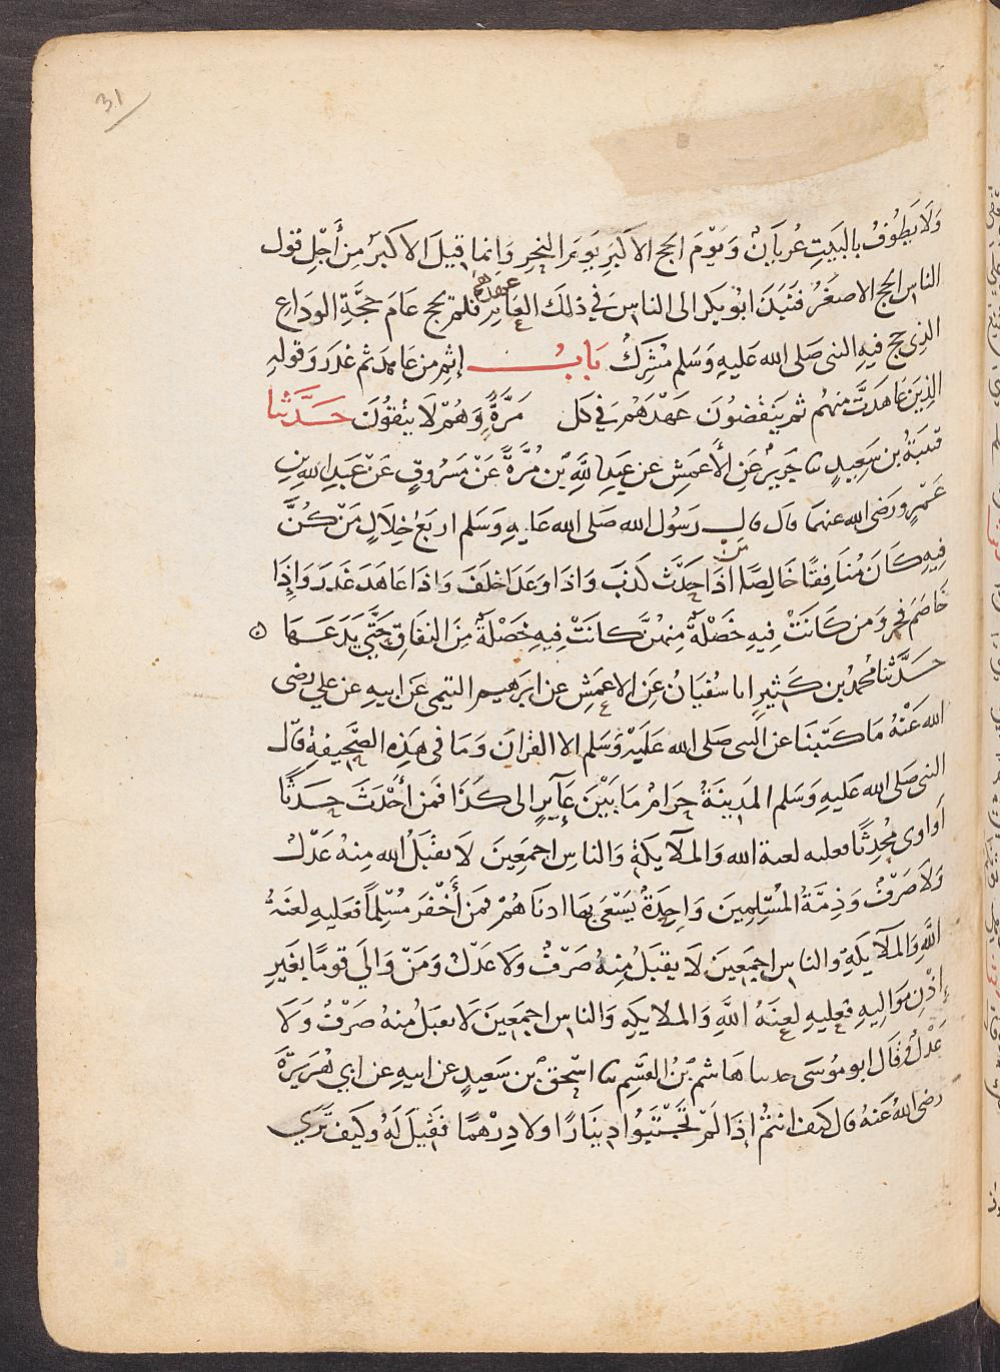 31
وَلَا يَطُوفُ بالبَيتِ عُريَانٌ وَيَوْمَ الحج الاكبَرِ يَومَ النحِر وَانما قيلَ الاكبَرُ مِن أَجْلِ قول
الناس الحج الاصغَرُ فَنَبَذَ ابو بكرٍ الى الناسِ في ذلكَ العَامِ عهدهم فلم يحج عَامَ حَجَّةِ الودَاعِ
الذِي حج فيهِ النبى صَلى الله عَليهِ وَسَلم مُشرِكٌ بَابُ إثمِ من عَاهدَ ثم غَدَر وَقولهِ
الذِينَ عَاهَدتَّ منهُم ثم يَنقضُونَ عَهْدَهُم في كل مَرَّةٍ وَهُمْ لَا يَتقوُنَ حَدَّثَنا
قتيبَةُ بن سَعِيدٍ نا جَرِيرٌ عَنِ الأَعمَشِ عن عَبدِ اللهِ بْنِ مُرَّةَ عَنْ مَسرُوقٍ عَنْ عَبدِ اللهِ بنِ
عَمْرٍو رَضى الله عنهمَا قالَ قال رَسُول الله صَلى الله عَليهِ وَسَلم اربَعُ خِلَالٍ مَنْ كُنَّ
فِيهِ كَانَ مُنَافِقًا خَالِصًا مَنْ اذَا حَدَّثَ كذبَ وَاذا وَعَدَ اخلَفَ وَاذا عَاهَدَ غَدَرَ وَاِذَا
خَاصَم فجر وَمن كَانَتْ فِيهِ خَصْلةٌ مِنهُنَّ كانَتْ فِيهِ خَصْلَةٌ مِنَ النفَاقِ حَتَّى يَدَعَهَا
حَدَّثَنَا مُحمدُ بن كَثِيرٍ انا سُفيَانُ عَنِ الاعمَشِ عن ابرَهيم التيمى عَن ابيهِ عن علي رضى
الله عَنْهُ مَا كَتَبنَا عن النبى صَلى الله عَلَيْهِ وَسَلم الا القُرانَ وَمَا فى هَذِهِ الصَّحِيفةِ قال
النبى صَلى الله عَليهِ وَسَلم المَدِينَةُ حرَامٌ مَا بَيْنَ عَآيِرٍ الى كَذَا فمَن أَحْدَثَ حَدَثًا
أَو اوى مُحْدِثًا فعليه لعنة الله وَالمَلَآيكَةِ وَالناسِ اجمَعِينَ لَا يقبَلُ الله مِنهُ عَدْلٌ
وَلَا صَرْفٌ وَذِمَّةُ المُسْلِمِينَ وَاحِدَةٌ يَسْعَى بهَا ادنَاهُمْ فمَن أَخْفَرَ مُسْلِمًا فعَليهِ لعَنَةُ
اللَّهِ وَالمَلَآيكَةِ وَالناسِ اجمَعينَ لَا يقبَلُ مِنهُ صَرْفٌ وَلا عَدْلٌ وَمَنْ وَالَى قومًا بغَيرِ
إِذْنِ مَوَالِيهِ فعليهِ لعنَةُ اللَّهِ وَالملَايكَةِ وَالناسِ اجمَعِينَ لَا يقبَلُ مِنهُ صَرْفٌ وَلَا
عَدْلٌ وَقَالَ ابو مُوسَى حدثنا هَاشمُ بْنُ القسِمِ نا اسْحقُ بْن سَعيدٍ عن ابيهِ عن ابي هُرَيرَةَ
رضى اللهُ عَنهُ قال كيَف انتُم اذَا لَمْ تَجْتَبُوا دِينَارًا وَلَا دِرْهمًا فقيلَ لَهُ وكيَف تَرَى